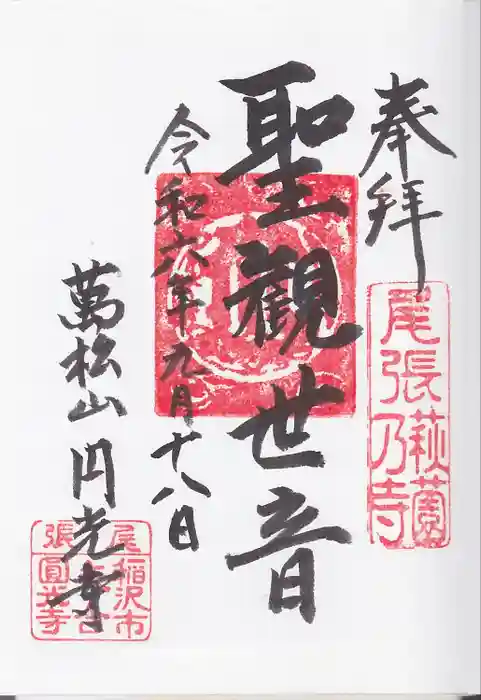 奉拝
尾張乃寺
萩薗
聖觀世音
令和六年九月十八日
萬松山円光寺
尾張
稲沢市
圓光寺